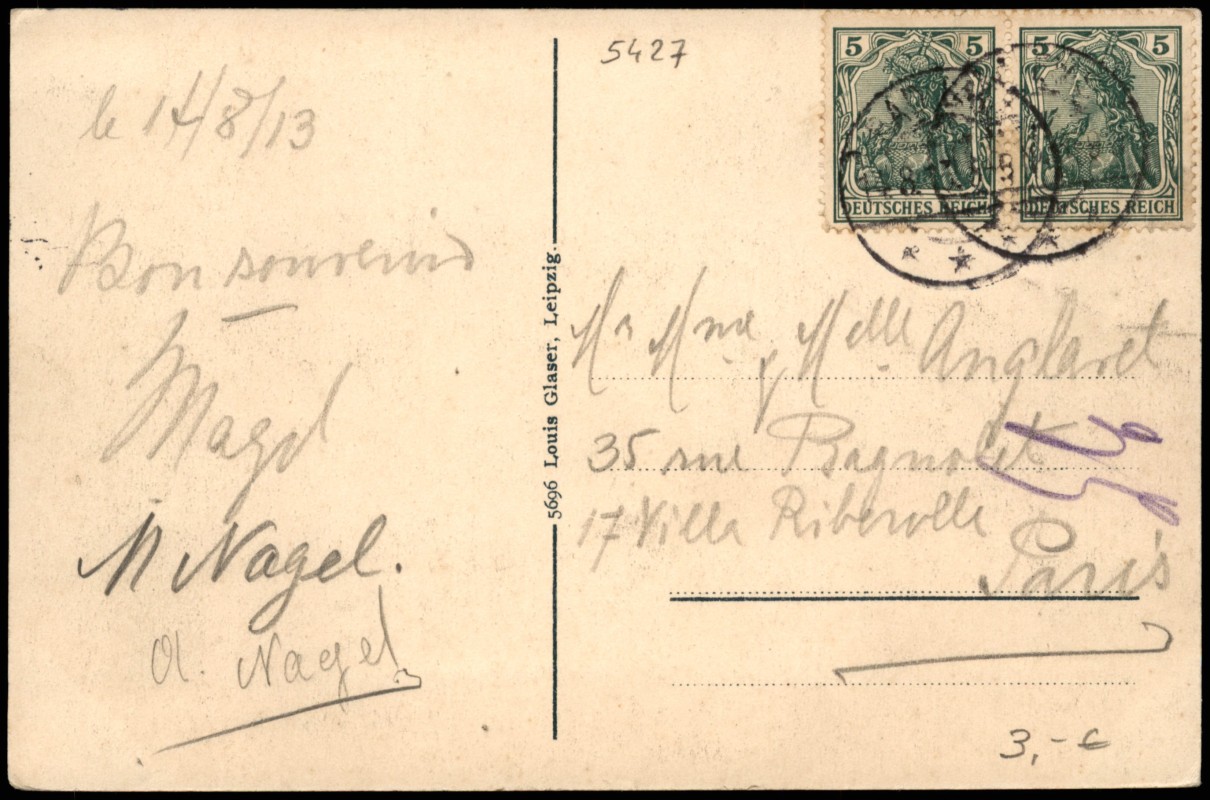 le 14/8/13
Bon souvenir
Magd
M Nagel.
A. Nagel
5696 Louis Glaser, Leipzig.
5427
5 5
DEUTSCHES REICH
5 5
DEUTSCHES REICH
Mr Mme y Melle Anglaret
35 rue Bagnolet
17 Villa Riberolle
Paris
3,-€